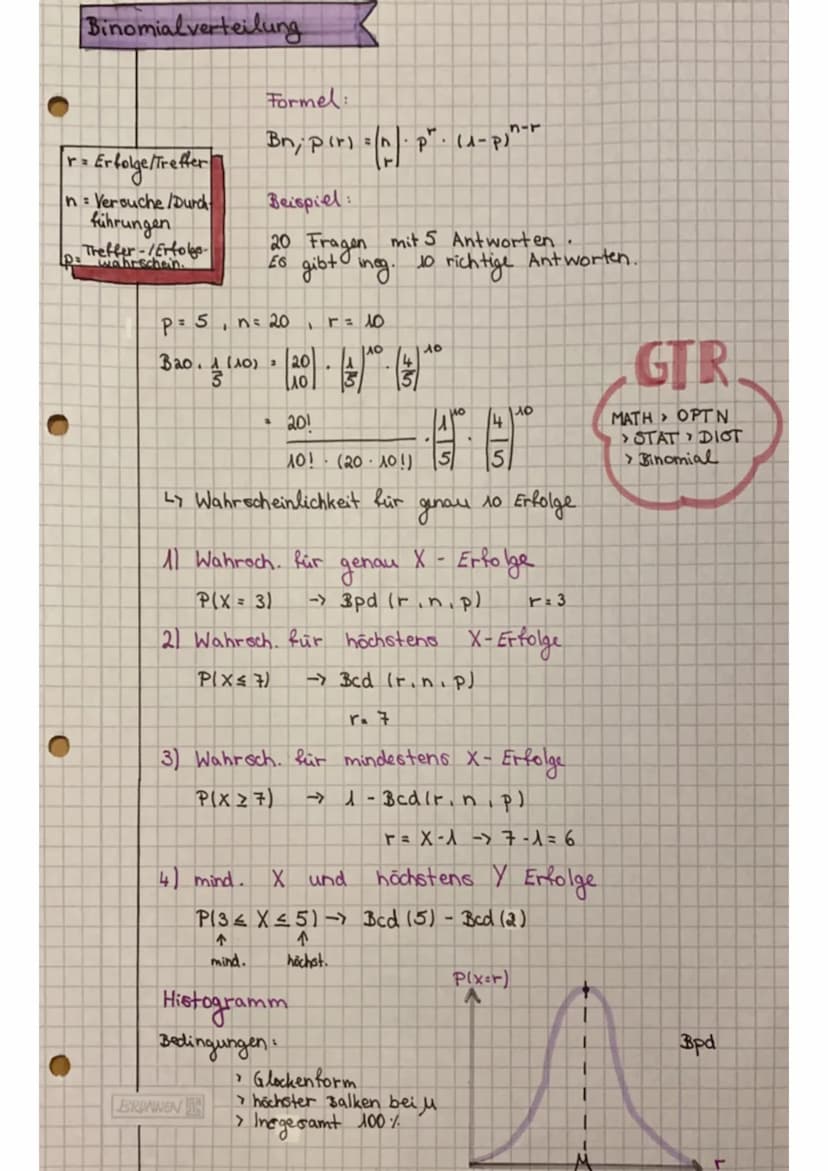 Binomialverteilung
Formel:
Bn;p(r) = (n r) · p^r · (1-p)^n-r
r = Erfolge/Treffer
n = Versuche/Durch-
führungen
p= Treffer-/Erfolgs-
wahrschein.
Beispiel:
20 Fragen mit 5 Antworten.
Es gibt insg. 10 richtige Antworten.
p = 5, n = 20, r = 10
B20, 1/5 (10) = (20 10) · (1/5)^10 · (4/5)^10
= 20! / 10! · (20 · 10!) · (1/5)^10 · (4/5)^10
↳ Wahrscheinlichkeit für genau 10 Erfolge
GTR
MATH > OPTN
> STAT > DIST
> Binomial
1) Wahrsch. für genau X - Erfolge
P(X = 3) → Bpd (r, n, p) r = 3
2) Wahrsch. für höchstens X-Erfolge
P(X ≤ 7) → Bcd (r, n, p)
r = 7
3) Wahrsch. für mindestens X- Erfolge
P(X ≥ 7) → 1 - Bcd(r, n, p)
r = X-1 → 7-1 = 6
4) mind. X und höchstens Y Erfolge
P(3 ≤ X ≤ 5) → Bcd (5) - Bcd (2)
↑ ↑
mind. höchst.
Histogramm
Bedingungen:
> Glockenform
> höchster Balken bei μ
> Insgesamt 100%
P(X=r)
Bpd
μ
r
BRUNNEN